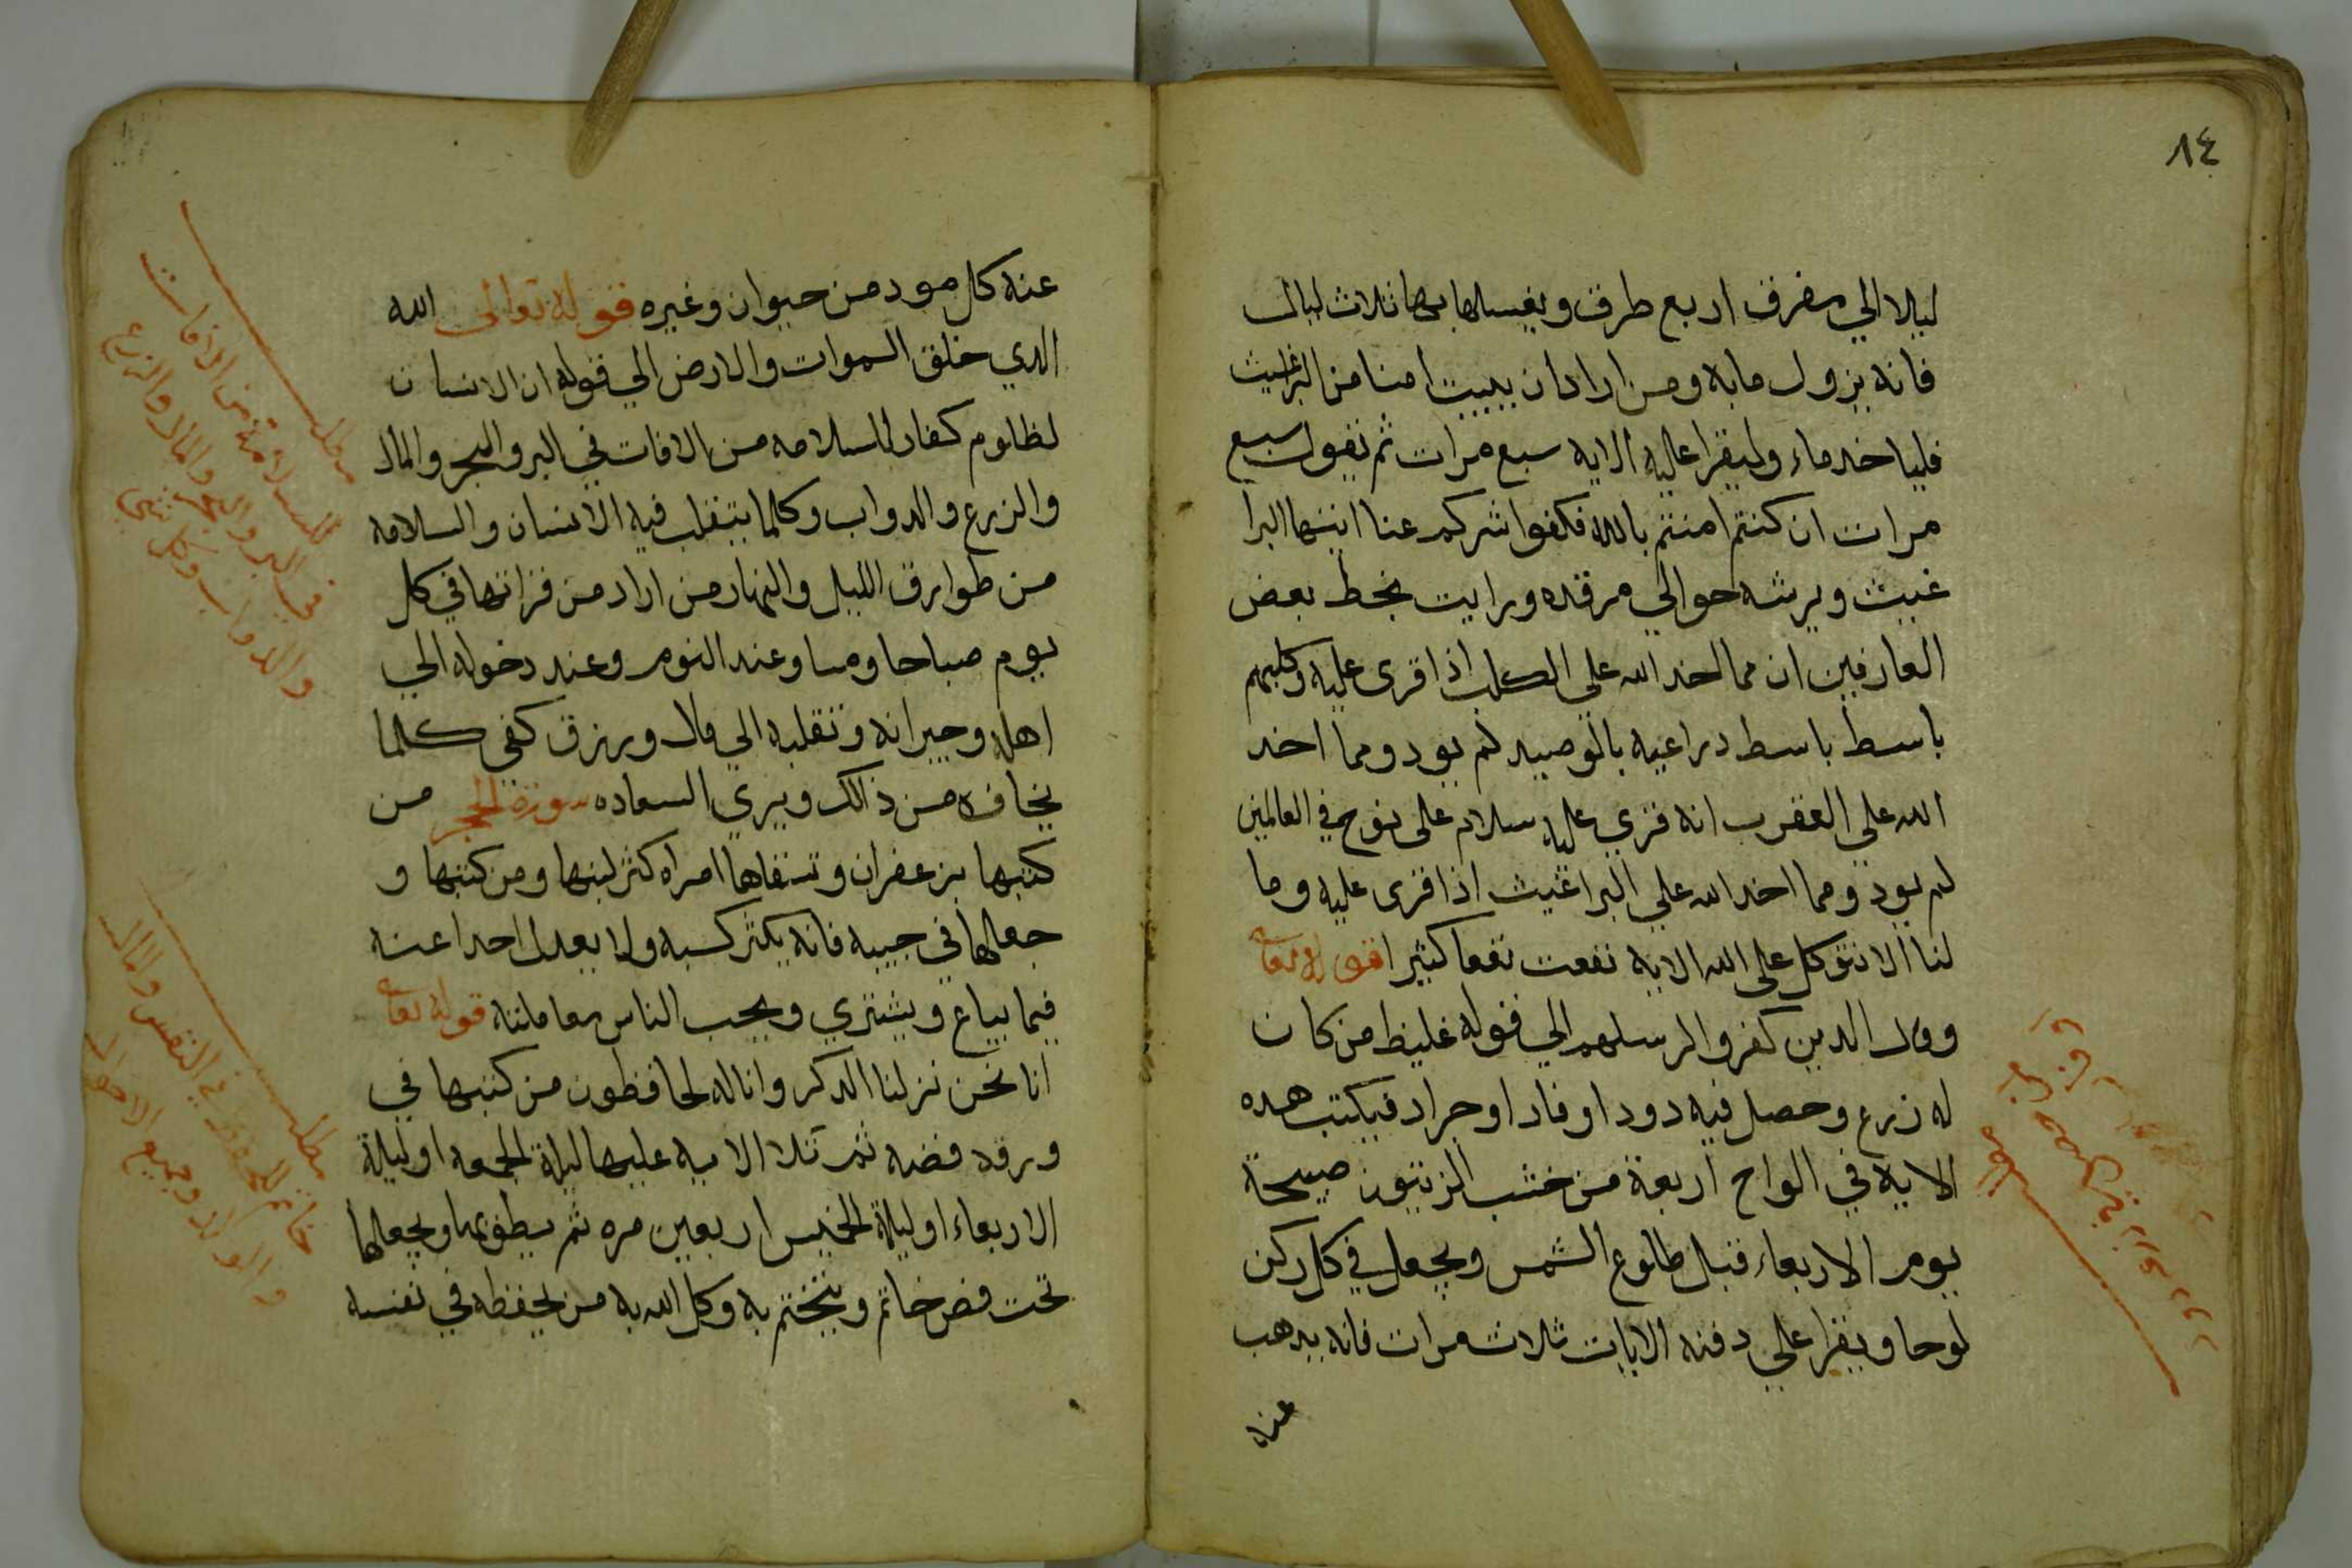 ٨٤
ليلا الي مفرق اربع طرق ويغسلها بها ثلاث ليال
فانه يزول مابه ومن اراد ان يبيت امنا من البراغيث
فلياخد ماء وليقرا عليه الايه سبع مرات ثم تقول سبع
مرات ان كنتم امنتم بالله فكفوا شركم عنا ايتها البرا
غيث ويرشه حوالي مرقده ورايت بخط بعض
العارفين ان مما اخد الله علي الكلب اذا قرى عليه وكلبهم
باسط باسط دراعيه بالوصيد لم يود ومما اخد
الله علي العقرب انه قري عليه سلام على نوح في العالمين
لم يود ومما اخد الله علي البراغيث اذا قرى عليه وما
لنا الا نتوكل على الله الايه نفعت نفعا كثيرا قوله تعا
وقال الدين كفروا لرسلهم الي قوله غليظ من كان
له زرع وحصل فيه دود او فار او جراد فيكتب هده
الايه في الواح اربعة من خشب الزيتون صبيحة
يوم الاربعاء قبل طلوع الشمس ويجعل في كل ركن
لوحا ويقرا علي دفنه الايات ثلاث مرات فانه يدهب
عنه
عنه كل مود من حيوان وغيره قوله تعالى الله
الدي خلق السموات والارض الي قوله ان الانسان
لظلوم كفار للسلامه من الافات في البر والبحر والمال
والزرع والدواب وكلما يتقلب فيه الانسان والسلامه
من طوارق الليل والنهار من اراد من قراتها في كل
يوم صباحا ومسا وعند النوم وعند دخوله الي
اهله وجيرانه وتقلبه الي مال ورزق كفي كلما
يخافه من ذالك ويري السعاده سورة الحجر من
كتبها بزعفران وتسقاها امراه كثر لبنها ومن كتبها و
جعلها في جيبه فانه يكثر كسبه ولا يعدل احدا عنه
فيما يباع ويشتري ويحب الناس معاملته قوله تعا
انا نحن نزلنا الدكر وانا له لحافظون من كتبها في
ورقه فضه ثم تلا الايه عليها ليلة الجمعه او ليلة
الاربعاء او ليلة الخميس اربعين مره ثم يطويها ويجعلها
تحت فص خاتم ويتختم به وكل الله به من يحفظه في نفسه
مطلب
للسلامة من الافات
في البر والبحر والمال والزرع
والدواب وكل شي
مطلب
خاتم للحفظ في النفس والمال
والولد وجميع الاحوال